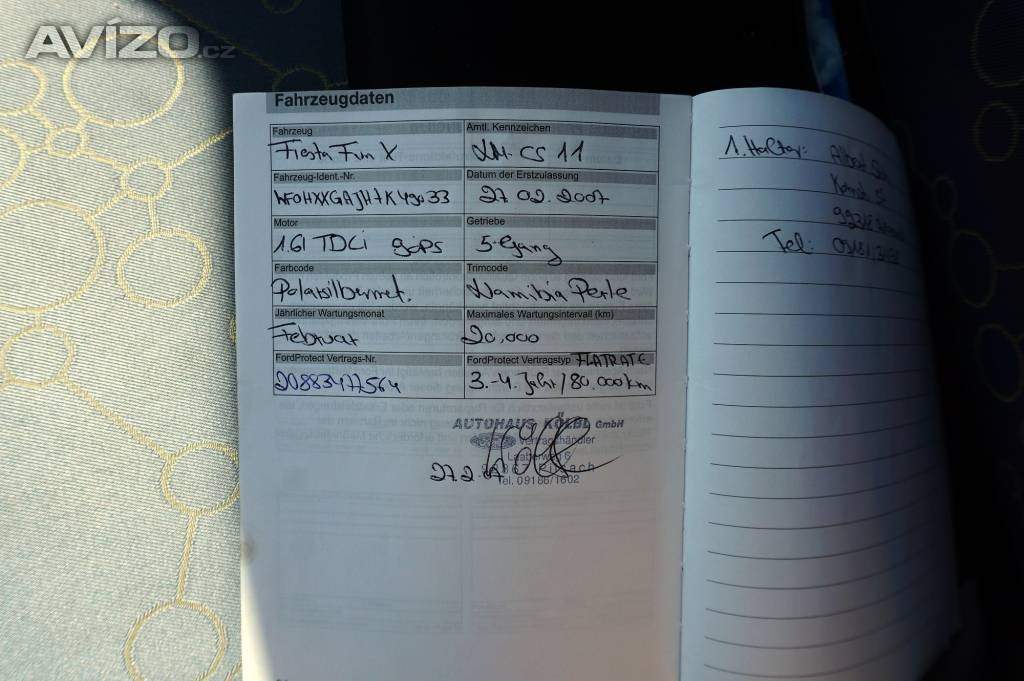 AVÍZO.cz
Fahrzeugdaten
Fahrzeug
Amtl. Kennzeichen
Fiesta Fun X
CS 11
Fahrzeug-Ident.-Nr.
Datum der Erstzulassung
27 02. 2007
Motor
Getriebe
1.6l TDCi 90PS
5-Gang
Farbcode
Trimcode
Polarsilbermet.
Namibia Perle
Jährlicher Wartungsmonat
Maximales Wartungsintervall (km)
Februar
20,000
FordProtect Vertrags-Nr.
FordProtect Vertragstyp FLATRATE
20883477564
3.-4. Jahr/80.000km
AUTOHAUS KÖLBL GmbH
Vertragshändler
Tel. 09186/1602
27.2.
1. Halter:
Tel: